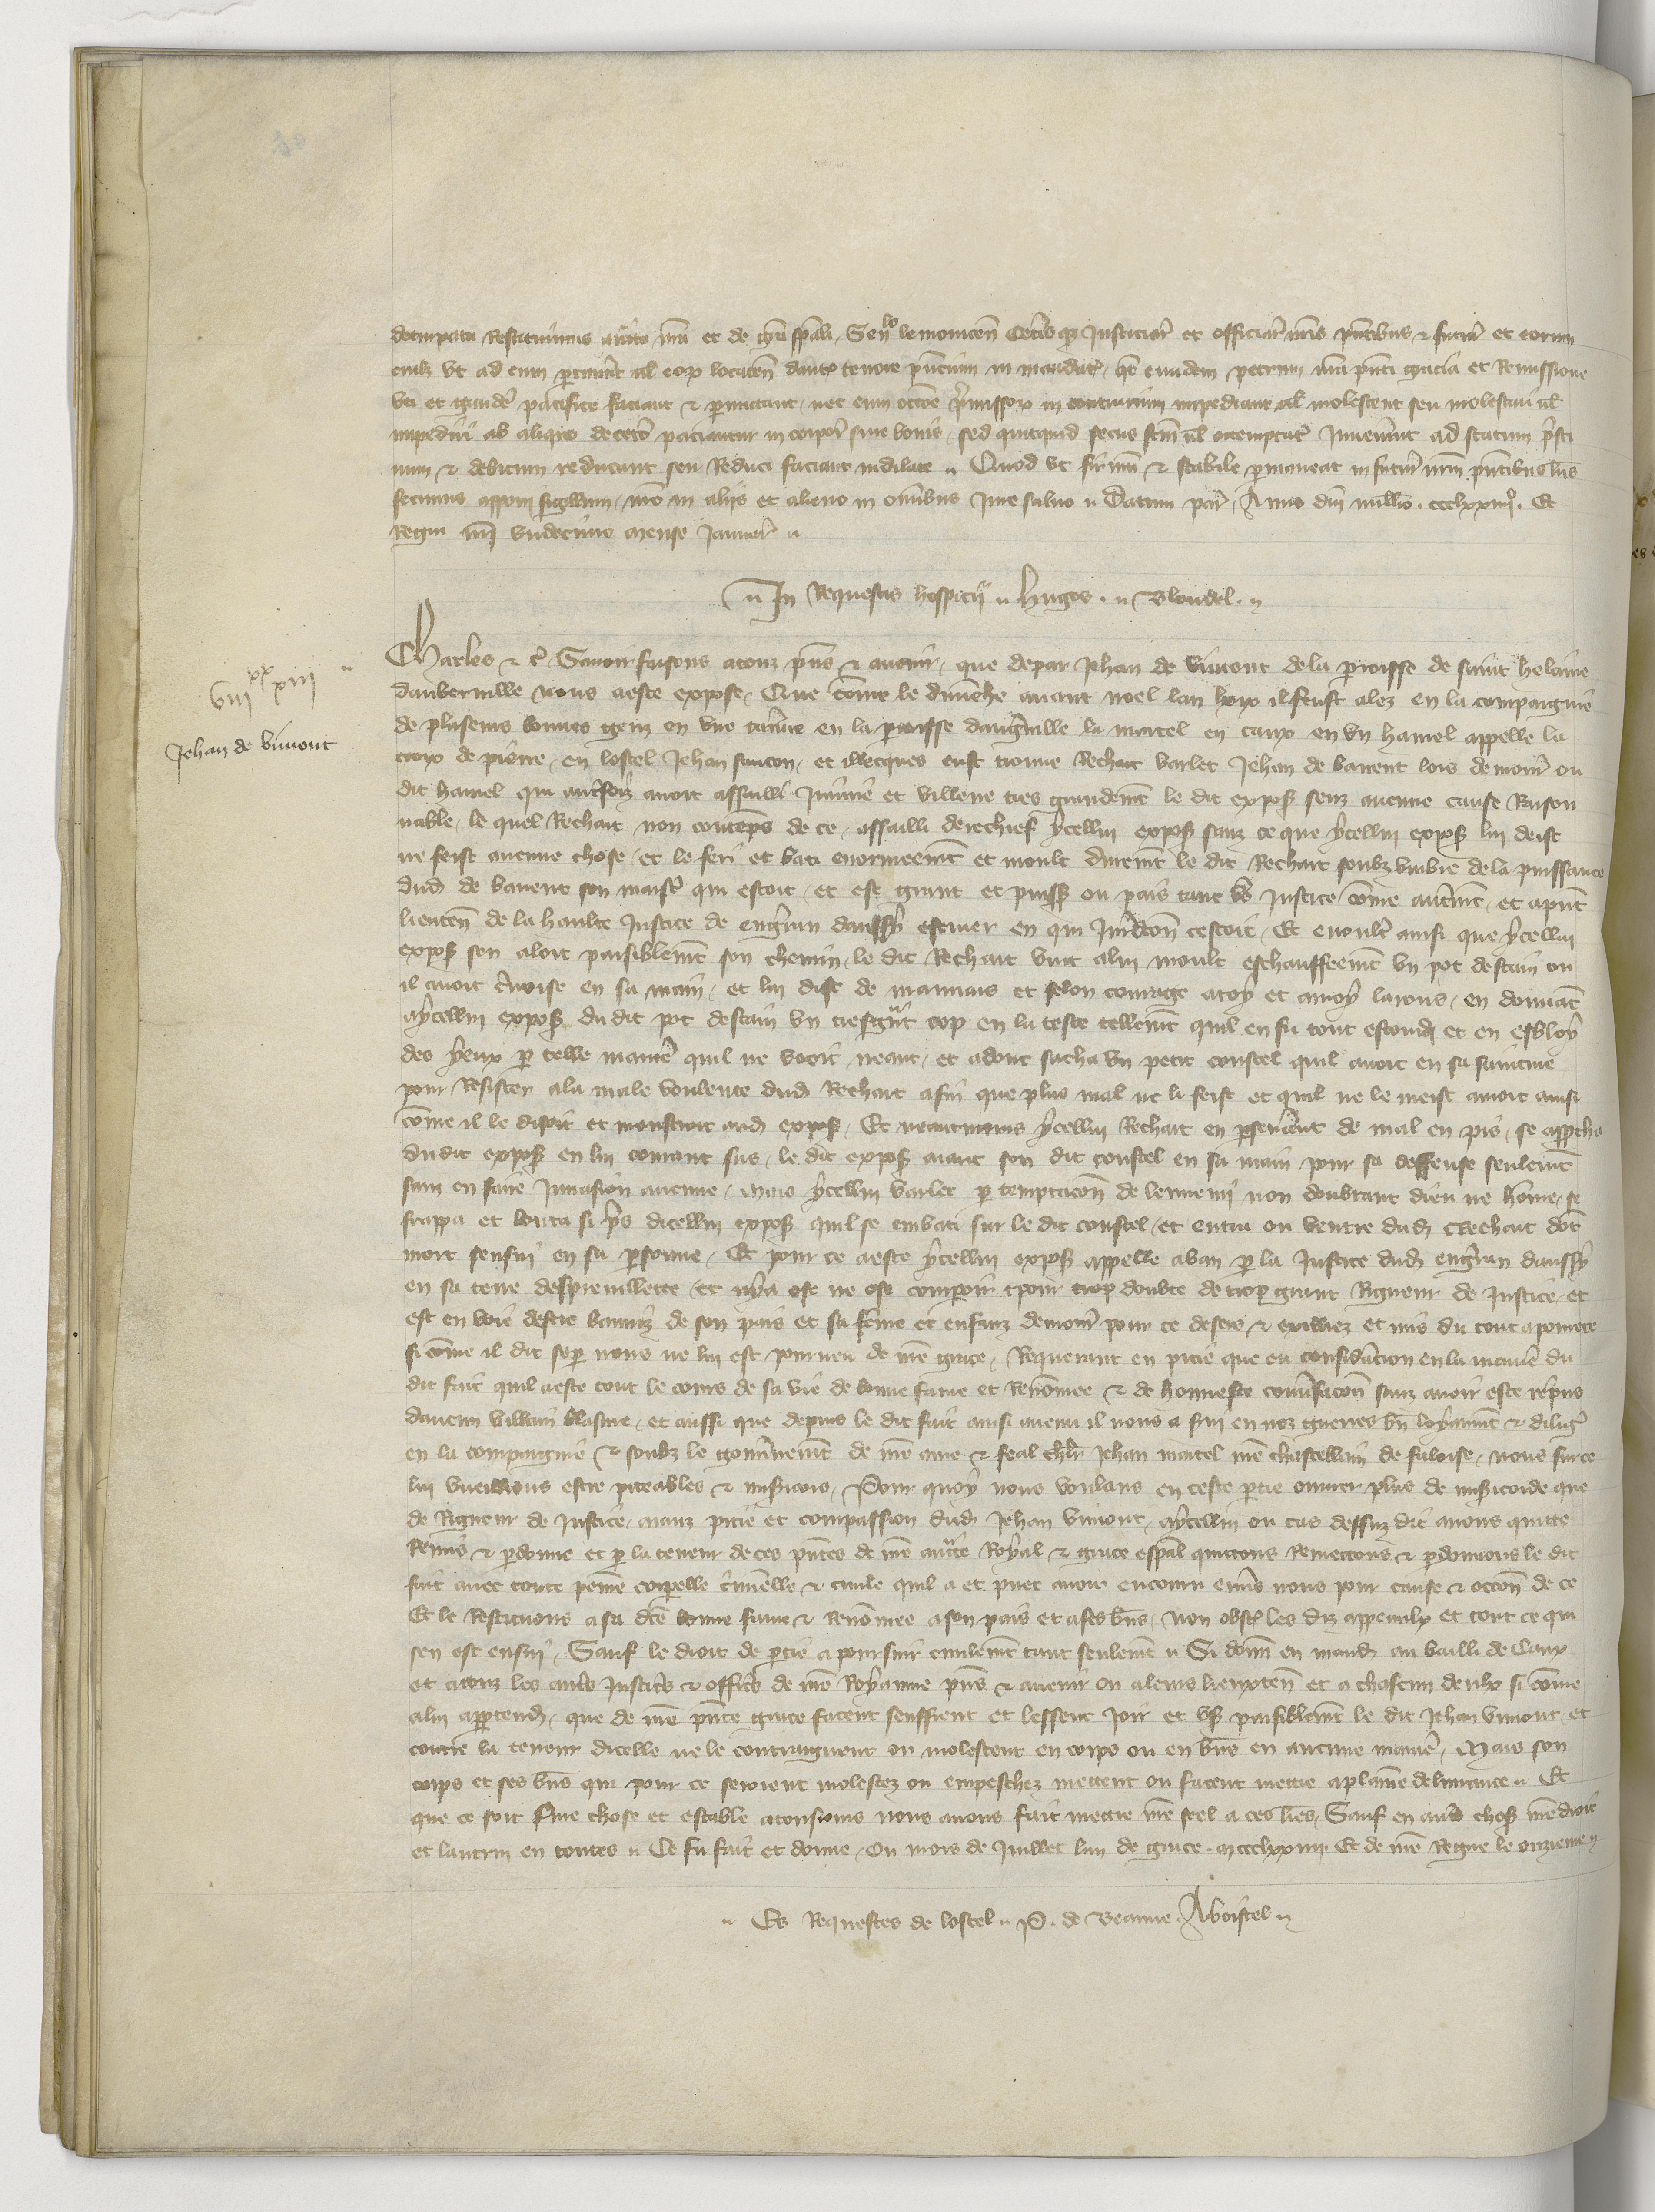 et de Senllo lemovicen Ceterisque Justiciar et officiar nris pntibus & futur et eorum
cuilz vt ad eum pertinuerit vel eorum locaten dantes tenore pntium in mandatis, quatenus eundem petrum nra pnti gracia et Remissione
vti et gaudere pacifice faciant & permittant, nec eum occone premissorum in contrarium impediant vel molestent seu molestari vel
impediri ab aliquo de cetero paciantur in corpore sive bonis, sed quitquid secus fcm vel attemptatum Invenerint ad statum pristi
num & debitum reducant seu Reduci faciant indilate. Quod vt firmum & stabile permaneat in futurum nrm pntibus lris
fecimus apponi sigillum, nro in aliis et alieno in omnibus Jure salvo. Datum par, Anno dni millio. ccclxxiiijo. Et
Regni nri vndecimo mense Januar
In Requestis hospicij. hugo. Blondel.
Charles & c Savoir faisons a touz pns & avenir, que de par Jehan de vimont de la parroisse de saint helaine
daubervulle nous a este expose, Que come le dimenche avant noel lan il feust alez en la compaignie
de plusieurs bonnes genz en vne taverne en la parroisse dangerville la martel en caux en vn hamel appelle la
croix de pierre, en lostel Jehan saucon, et illecques eust trouve Rechart varlet Jehan de bavent lors demour ou
dit hamel qui autrefoiz avoit assailli Iniurie et villene tres grandemt le dit expos senz aucune cause Raison
nable, le quel Rechart non contemps de ce, assailli derechief ycellui expos sanz ce que ycellui expos lui deist
ne feist aucune chose, et le feri et bati enormeemt et moult duremt le dit Rechart soubz vmbre de la puissance
dud de bavent son maistre qui estoit, et est grant et puiss ou pais tant vers Justice come autremt, et a pnt
lieuten de la haulte Justice de engerran daussy escuier en qui Juridicon cestoit, Et en oultre ainsi que ycellui
expos sen aloit paisiblemt son chemin, le dit Rechart vint a lui moult eschauffeemt vn pot destain ou
il avoit cervoise en sa main, et lui dist de mauvais et felon courage a toy et a moy larons, en donnant
a ycellui expos du dit pot destain vn tresgrant cop en la teste tellemt quil en fu tout estourdi et en esbloy
des yeux par telle maniere quil ne veoit neant, et adont sacha vn petit coustel quil avoit en sa sainture
pour Resister a la male voulente dud Rechart afin que plus mal ne li feist et quil ne le meist a mort ainsi
come il le disoit et monstroit aud expos, Et neantmoins ycellui Rechart en perseverant de mal en pis, se approcha
du dit expos en lui courant sus, le dit expos aiant son dit coustel en sa main pour sa deffense seulemt
sanz en faire Invasion aucune, mais ycellui varlet par temptacon de lennemi non doubtant dieu ne home, se
frappa et bouta si pres dicellui expos quil se embati sur le dit coustel, et entra ou ventre dud Rechart dont
mort sensui en sa personne, Et pour ce a este ycellui expos appelle a ban par la Justice dud engerran daussy
en sa terre despreuillette, et nya ose ne ose comparoir pour trop doubte de trop grant Rigueur de Justice, et
est en voie destre banniz de son pais et sa feme et enfanz demour pour ce desers & exilliez et mis du tout a povrete
si come il dit se par nous ne lui est pourveu de nre grace, Requerant en pitie que eu consideracion en la maniere du
dit fait quil a este tout le cours de sa vie de bonne fame et Renommee & de honneste conversacon sanz avoir este repris
daucun villain blasme, et aussi que depuis le dit fait ainsi avenu il nous a servi en noz guerres bn loyaumt & diligement
en la compaignie & soubz le gouvernemt de nre ame & feal chlr Jehan martel nre chastellain de faloise, nous sur ce
lui vueillons estre piteables & misericors, Pour quoy nous voulans en ceste partie ouvrer plus de misericorde que
de Rigueur de Justice, aianz pitie et compassion dud Jehan vimont, a ycellui ou cas dessuz dit avons quitte
Remis & pardonne et par la teneur de ces pntes de nre auctte Royal & grace espal quittons Remettons & pardonnons le dit
fait avec toute peine corporelle criminelle & civile quil a et puet avoir encouru envers nous pour cause & occon de ce
Et le Restituons a sa dte bonne fame & Renommee a son pais et a ses bns, Non obst les diz appeaulx et tout ce qui
sen est ensui, Sauf le droit de partie a poursuir civilemt tant seulemt. Si donn en mand au bailli de Caux
et a touz les autres Justiciers & officiers de nre Royaume pns & avenir ou a leurs lieuxten et a chascun deulx si come
a lui appartendra, que de nre pnte grace facent seuffrent et lessent Joir et vser paisiblemt le dit Jehan vimont, et
contre la teneur dicelle ne le contraignent ou molestent en corps ou en bns en aucune maniere, Mais son
corps et ses bns qui pour ce seroient molestez ou empeschez mettent ou facent mettre a plaine delivrance. Et
que ce soit ferme chose et estable a tousiours nous avons fait mettre nre seel a ces lres, Sauf en autres choses nre droit
et lautrui en toutes. Ce fu fait et donne, Ou mois de Juillet lan de grace. mccclxxiiij Et de nre Regne le onzieme
Es Requestes de lostel. P. de Beaune. Aboistel
viij xx xiij
Jehan de vimont